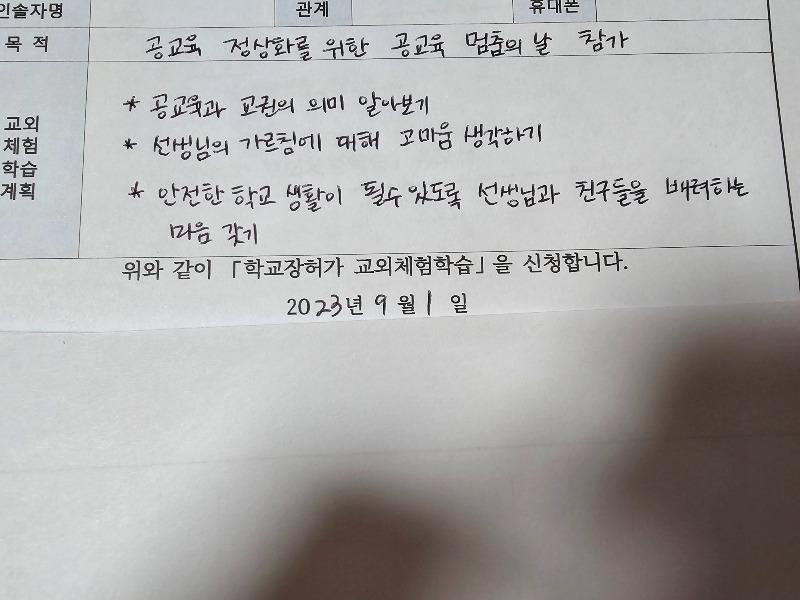 인솔자명 관계 휴대폰
목 적 공교육 정상화를 위한 공교육 멈춤의 날 참가
교외
체험
학습
계획
* 공교육과 교권의 의미 알아보기
* 선생님의 가르침에 대해 고마움 생각하기
* 안전한 학교 생활이 될수 있도록 선생님과 친구들을 배려하는
마음 갖기
위와 같이 「학교장허가 교외체험학습」을 신청합니다.
2023년 9월 1일